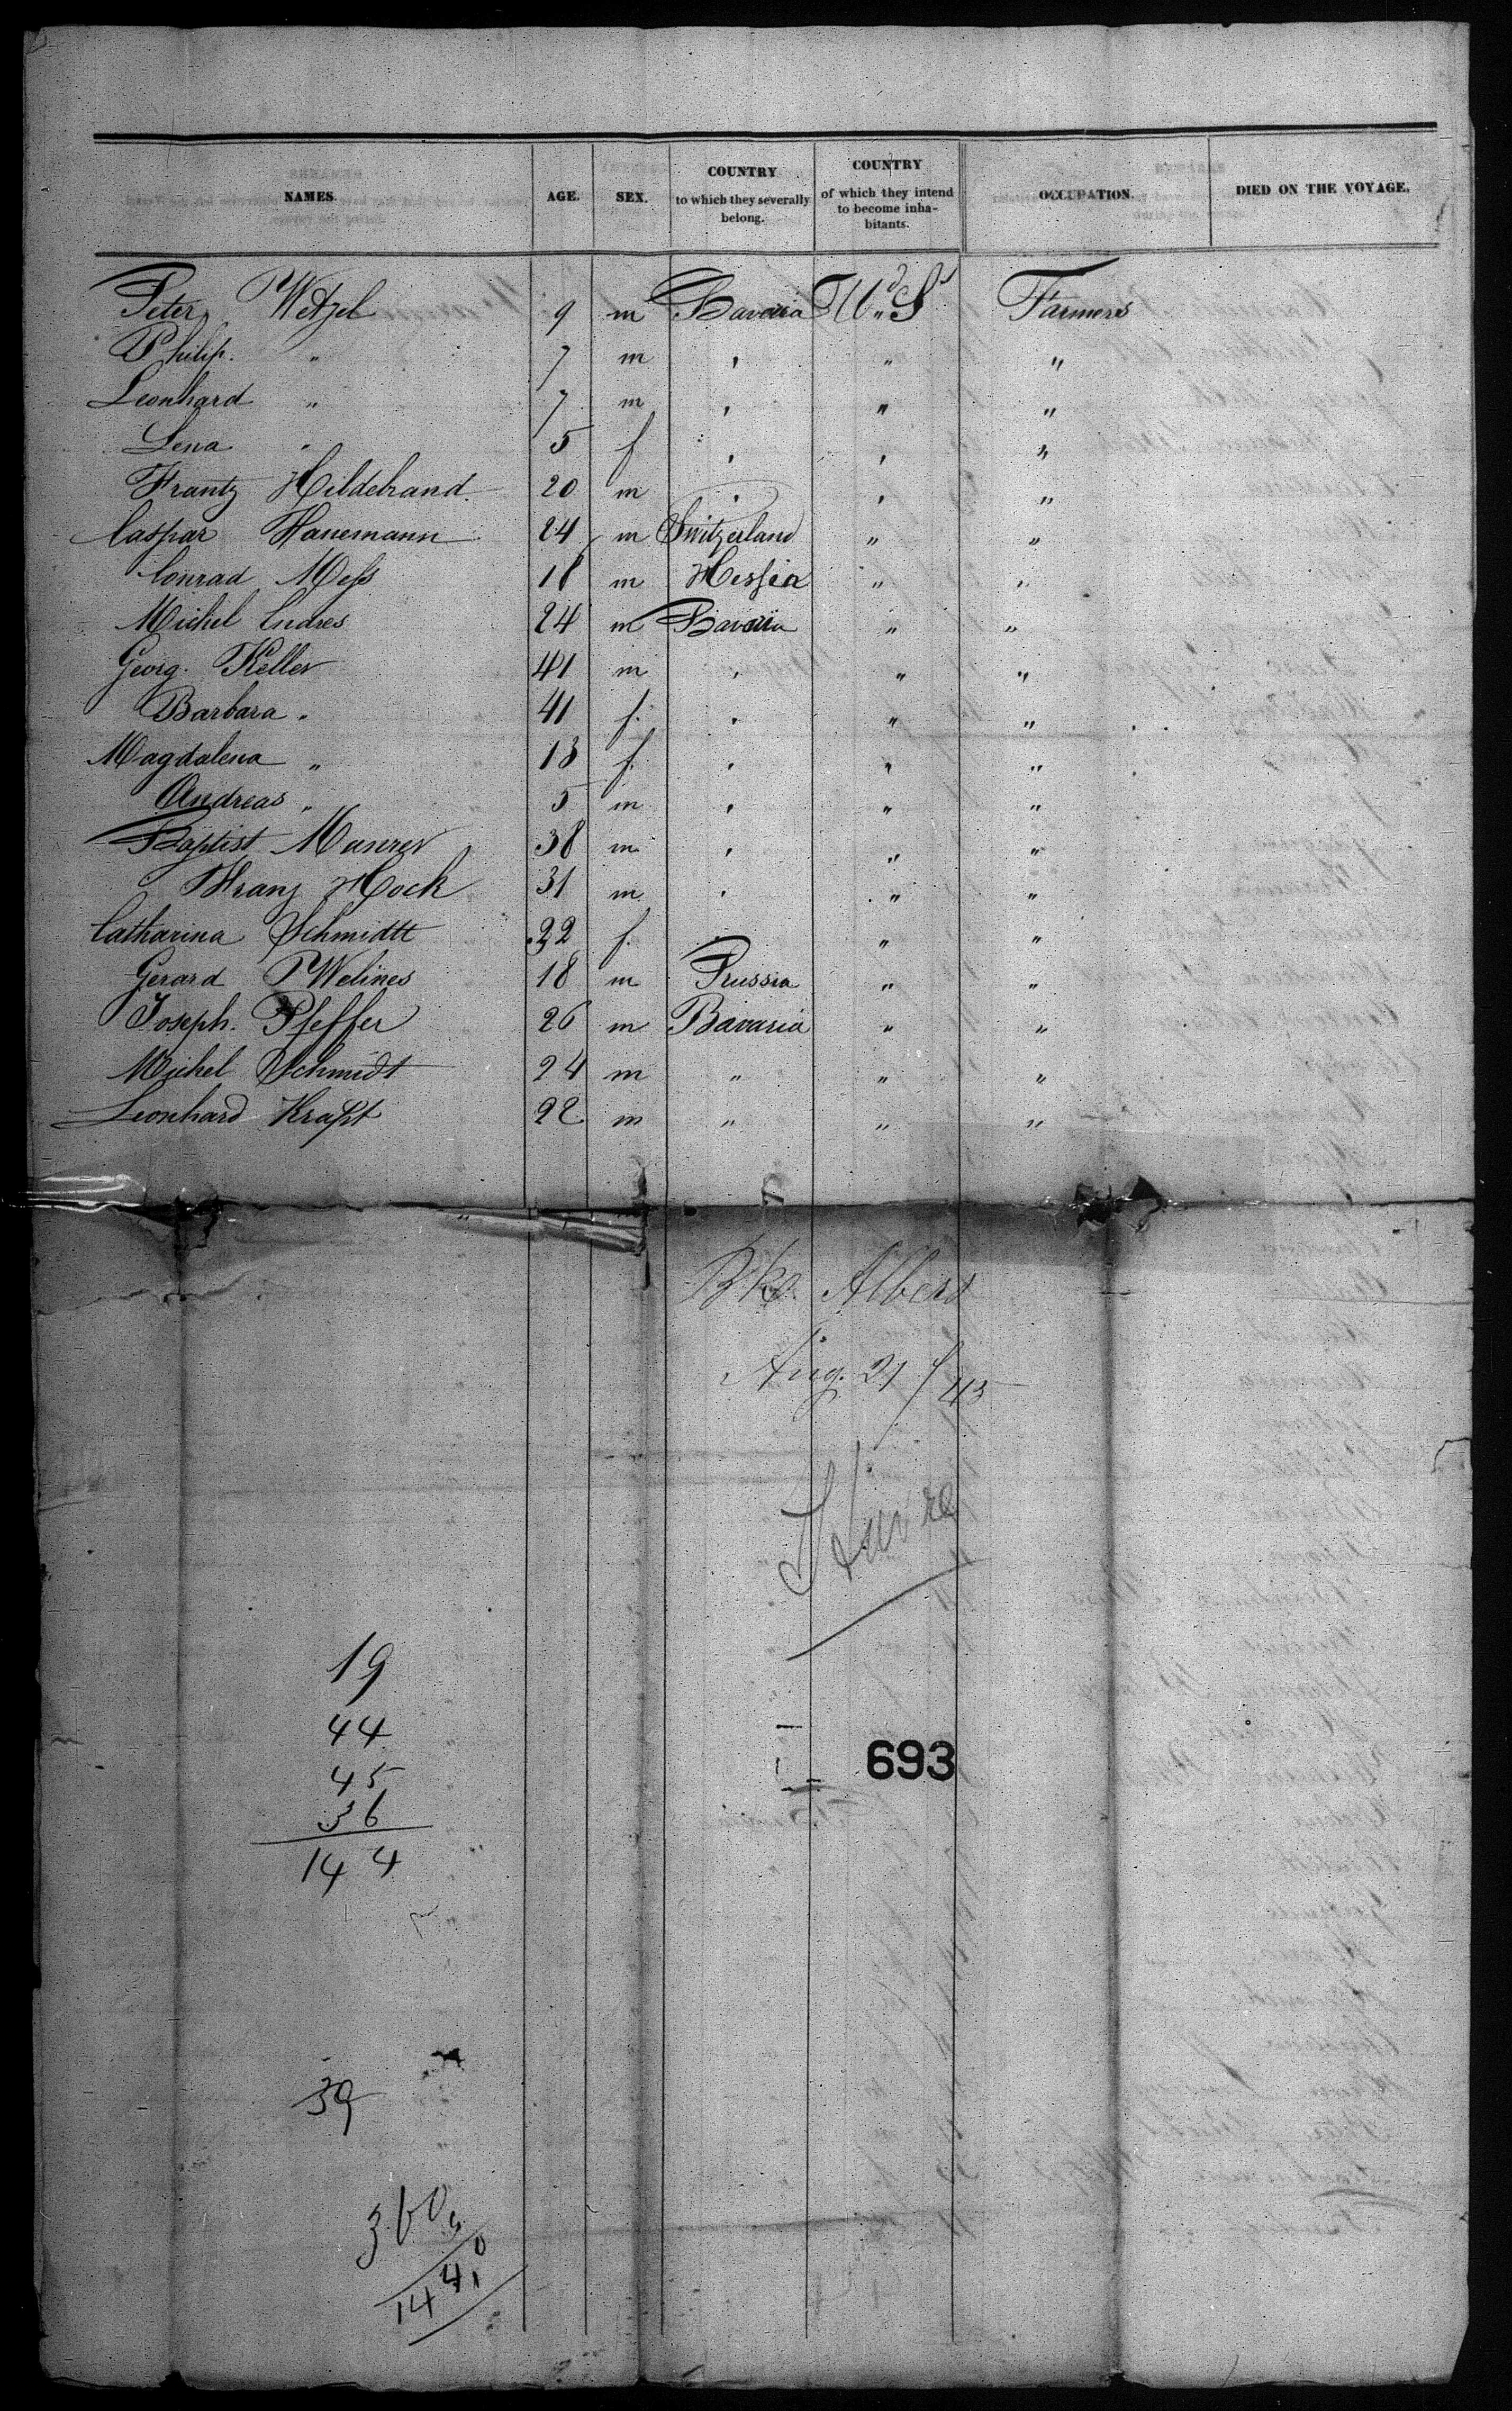 NAMES. AGE. SEX. COUNTRY to which they severally belong. COUNTRY of which they intend to become inhabitants. OCCUPATION. DIED ON THE VOYAGE.
Peter Wetzel 9 m Bavaria Ud Ss Farmers
Philip. " 7 m " " "
Leonhard " 7 m " " "
Lena " 5 f " " "
Frantz Hildebrand 20 m " " "
Caspar Hanemann 24 m Switzerland " "
Conrad Mess 18 m Hessia " "
Michel Endres 24 m Bavaria " "
Georg. Keller 41 m " " "
Barbara " 41 f. " " "
Magdalena " 13 f. " " "
Andreas " 5 m " " "
Baptist Maurer 38 m " " "
Franz Hock 31 m " " "
Catharina Schmidtt 22 f. " " "
Gerard Welines 18 m Prussia " "
Joseph. Pfeffer 26 m Bavaria " "
Michel Schmidt 24 m " " "
Leonhard Kraft 22 m " " "
Bke. Albers
Aug. 21/45
Havre
19
44
45
36
144
693
39
360
4
1440